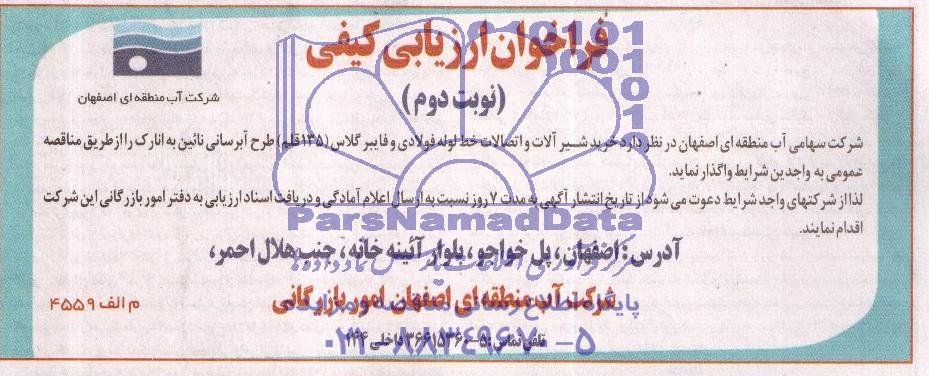 فراخوان ارزیابی کیفی
(نوبت دوم)
شرکت آب منطقه ای اصفهان
شرکت سهامی آب منطقه ای اصفهان در نظر دارد خرید شیر آلات و اتصالات خط لوله فولادی و فایبر گلاس (۱۳۵ قلم) طرح آبرسانی نائین به انارک را از طریق مناقصه
عمومی به واجدین شرایط واگذار نماید.
لذا از شرکتهای واجد شرایط دعوت می شود از تاریخ انتشار آگهی به مدت ۷ روز نسبت به ارسال اعلام آمادگی و دریافت اسناد ارزیابی به دفتر امور بازرگانی این شرکت
اقدام نمایند.
آدرس: اصفهان، پل خواجو، بلوار آئینه خانه، جنب هلال احمر،
شرکت آب منطقه ای اصفهان امور بازرگانی
م الف ۴۵۵۹
تلفن تماس: ۵-۳۶۶۱۵۳۶۰ داخلی ۱۴۴
ParsNamadData
۰۲۱-۸۸۳۴۹۶۷۰-۵